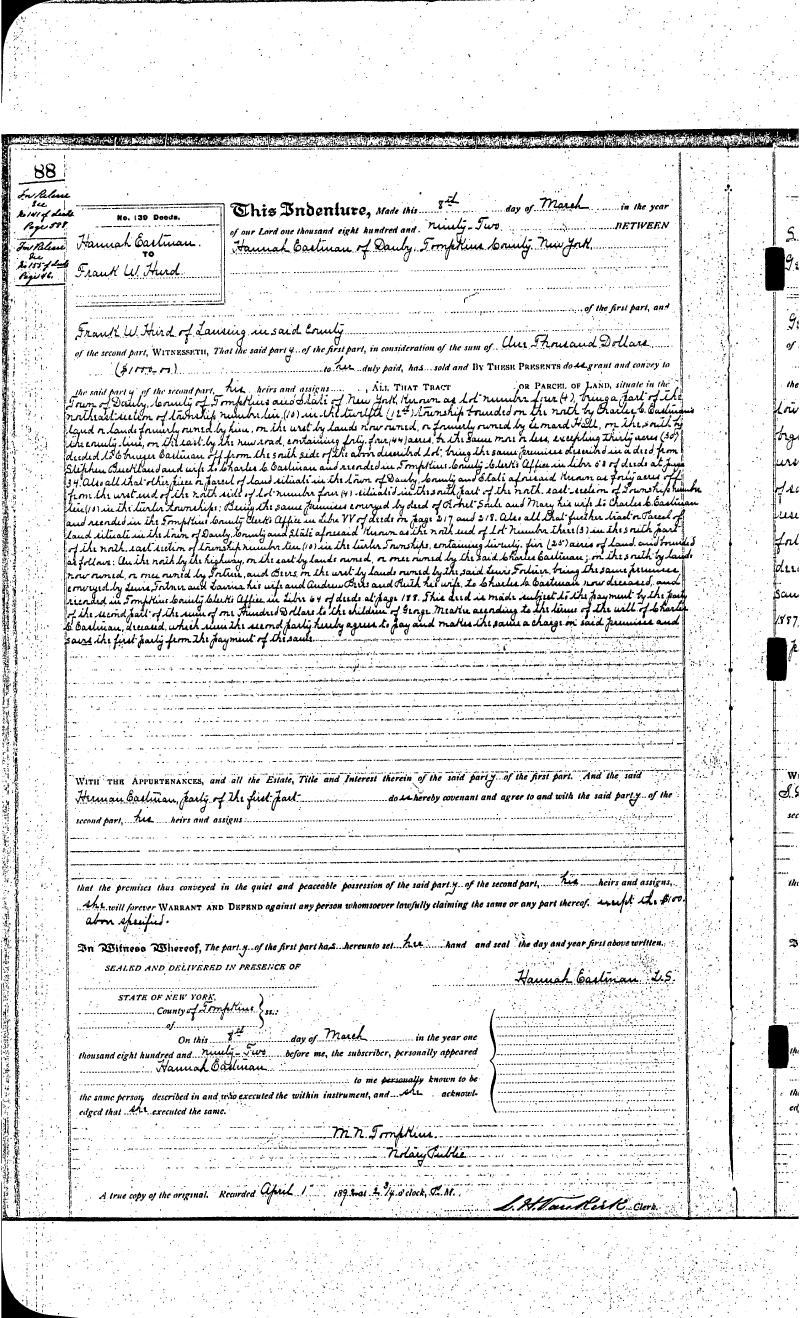 88
For Release
See
No 141 of Deeds
Page 588
For Release
See
No 155 of Deeds
Page 46.
No. 139 Deeds.
Hannah Eastman.
TO
Frank W. Hurd.
This Indenture, Made this 8th day of March in the year
of our Lord one thousand eight hundred and ninety-Two BETWEEN
Hannah Eastman of Danby Tompkins County New York
of the first part, and
Frank W. Hurd of Lansing in said County
of the second part, WITNESSETH, That the said party of the first part, in consideration of the sum of One Thousand Dollars
($1000.00) to her duly paid, has sold and BY THESE PRESENTS does grant and convey to
the said party of the second part, his heirs and assigns ALL THAT TRACT OR PARCEL OF LAND, situate in the
Town of Danby, County of Tompkins and State of New York Known as Lot number four (4), being a part of the
northeast section of township number ten (10) in the twelfth (12th) township bounded on the north by Charles C. Eastman's
land or lands formerly owned by him, on the west by lands now owned, or formerly owned by Leonard Hill, on the south by
the county line, on the east by the new road, containing forty four (44) acres, be the same more or less, excepting thirty acres (30)
deeded to Ebenezer Eastman off from the south side of the above described lot; being the same premises described in a deed from
Stephen and wife to Charles C. Eastman and recorded in Tompkins County Clerk's Office in Libre 58 of deeds at page
34. Also all that other piece or parcel of land situate in the town of Danby County and State aforesaid Known as forty acres off
from the west end of the north side of Lot number four (4) situated in the south part of the north east section of Township number
ten (10) in the twelve townships; Being the same premises conveyed by deed of Robert and Mary his wife to Charles C. Eastman
and recorded in the Tompkins County Clerk's Office in Libre VV of deeds on page 217 and 218. Also all that further tract or Parcel of
land situate in the town of Danby County and State aforesaid Known as the north end of lot number three (3) in the south part
of the north east section of township number ten (10) in the twelve Townships, containing twenty five (25) acres of land and bounded
as follows: On the north by the highway, on the east by lands owned, or once owned by the said Charles Eastman; on the south by lands
now owned, or once owned by and Beers, on the west by lands owned by the said Lewis, being the same premises
conveyed by Lewis and Lavina his wife and Andrew Beers and Ruth his wife, to Charles C. Eastman now deceased, and
recorded in Tompkins County Clerk's Office in Libre 64 of deeds at page 188. This deed is made subject to the payment by the party
of the second part of the sum of one Hundred Dollars to the children of George according to the terms of the will of Charles
C. Eastman, deceased, which sum the second party hereby agrees to pay and makes the same a charge on said premises and
saves the first party from the payment of the same.
WITH THE APPURTENANCES, and all the Estate, Title and Interest therein of the said party of the first part. And the said
Herman Eastman, party of the first part does hereby covenant and agree to and with the said party of the
second part, his heirs and assigns
that the premises thus conveyed in the quiet and peaceable possession of the said party of the second part, his heirs and assigns,
she will forever WARRANT AND DEFEND against any person whomsoever lawfully claiming the same or any part thereof, except the $100.
above specified.
In Witness Whereof, The party of the first part has hereunto set her hand and seal the day and year first above written.
SEALED AND DELIVERED IN PRESENCE OF
Hannah Eastman L.S.
STATE OF NEW YORK,
County of Tompkins ss.:
of
On this 8th day of March in the year one
thousand eight hundred and ninety-Two before me, the subscriber, personally appeared
Hannah Eastman
to me personally known to be
the same person described in and who executed the within instrument, and she acknowl-
edged that she executed the same.
M. N. Tompkins
Notary Public
A true copy of the original. Recorded April 1" 1892 at 2 3/4 o'clock, P. M.
L. H. VanKirk Clerk.